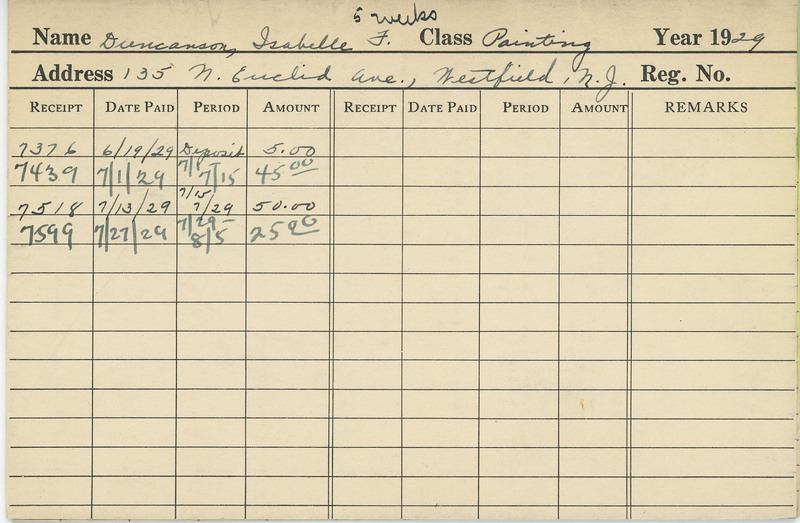 5 weeks
Name Duncanson, Isabelle F. Class Painting Year 1929
Address 135 N. Euclid Ave., Westfield, N.J. Reg. No.
RECEIPT DATE PAID PERIOD AMOUNT RECEIPT DATE PAID PERIOD AMOUNT REMARKS
7376 6/19/29 Deposit 5.00
7439 7/1/29 7/1 7/15 45 00
7518 7/13/29 7/15 7/29 50.00
7599 7/27/29 7/29- 8/5 25 00